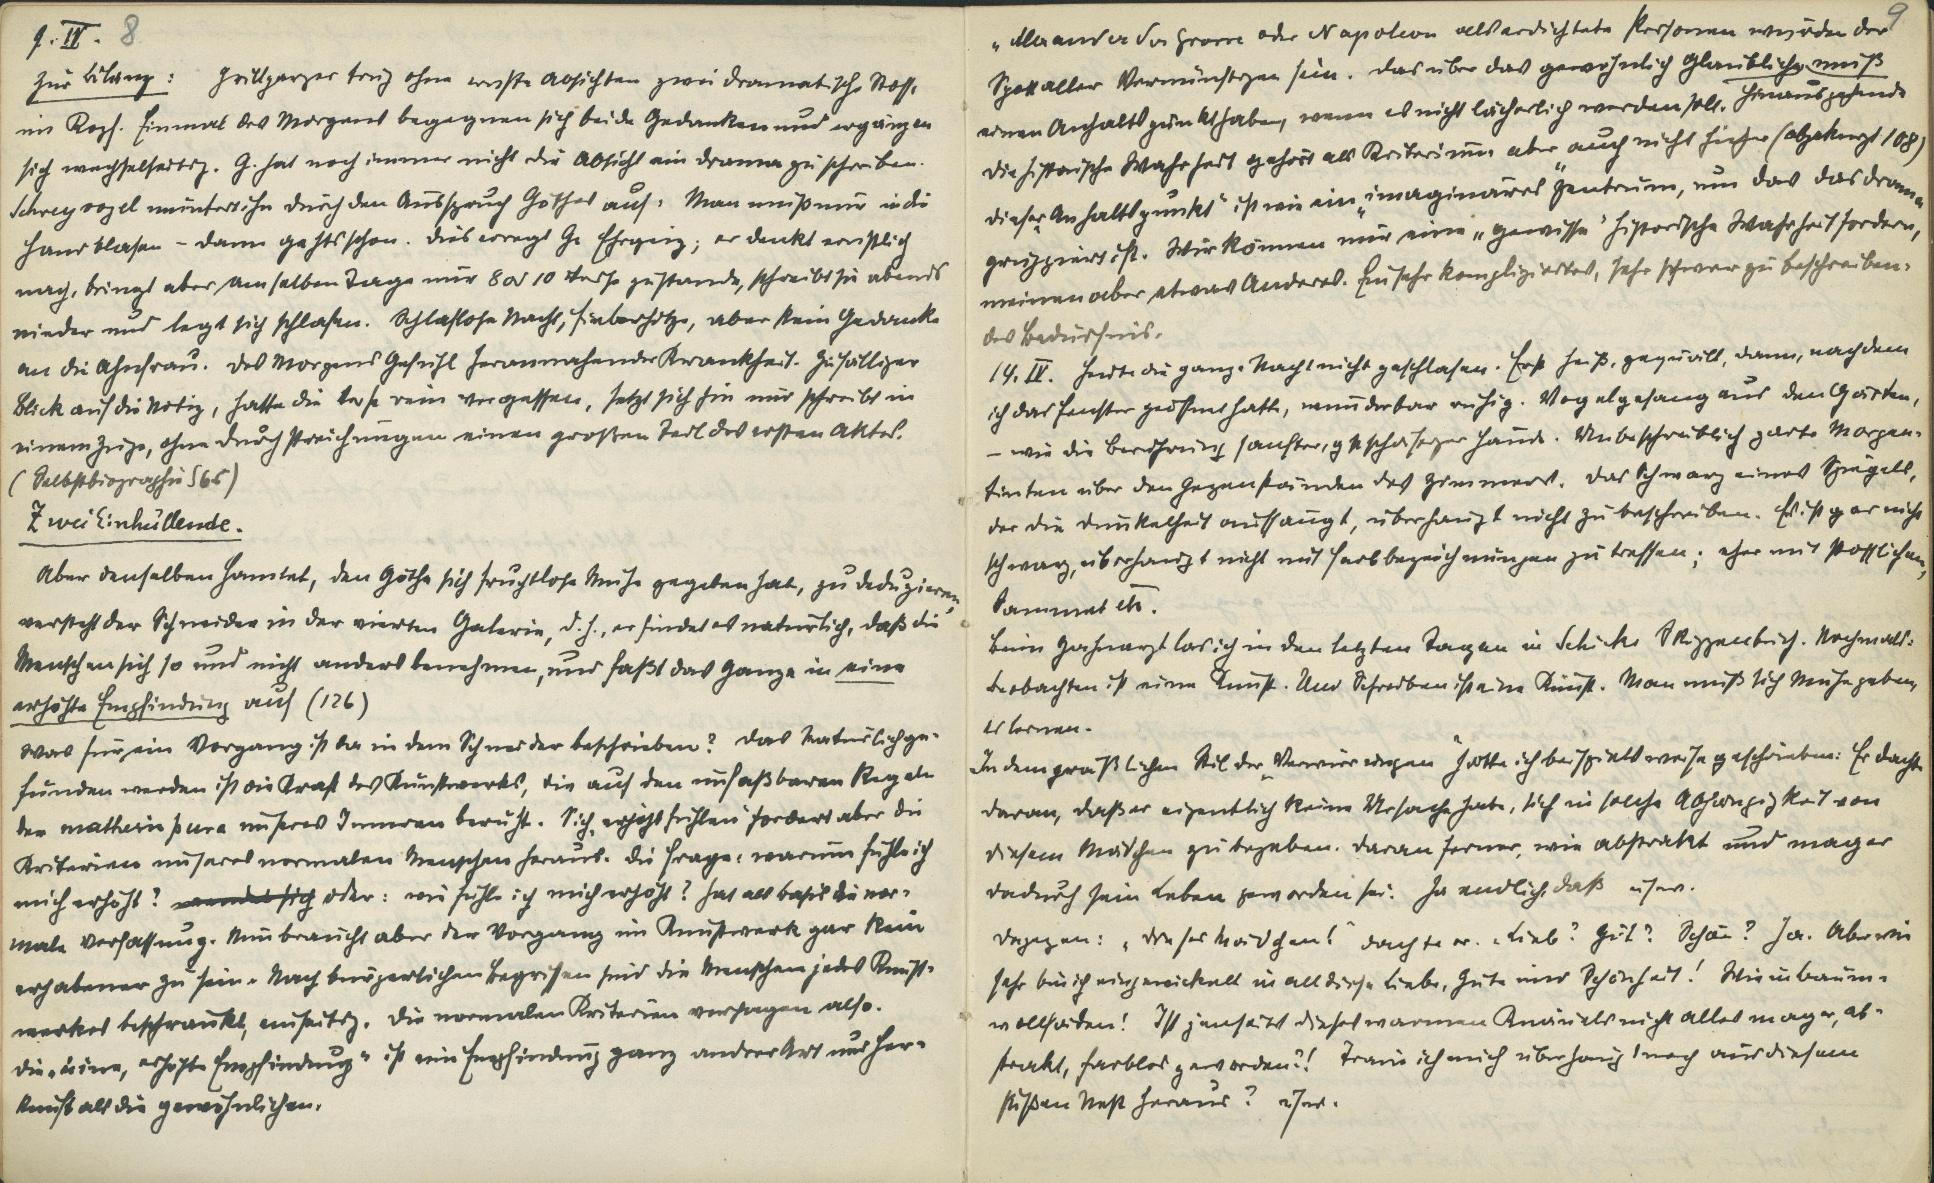 9. IV. 8
Zur Bilanz: Grillparzer trug ohne ernste Absichten zwei dramatische Stoffe
im Kopf. Einmal des Morgens begegnen sich beide Gedanken und ergänzen
sich wechselseitig. G. hat noch immer nicht die Absicht ein Drama zu schreiben.
Schreyvogel muntert ihn durch den Ausspruch Göthes auf: Man muß nur in die
Hand blasen – dann gehts schon. Dies erregt G. Ehrgeiz; er denkt ernstlich
nach, bringt aber am selben Tage nur 8 od 10 Verse zustande, schreibt sie abends
nieder und legt sich schlafen. Schlaflose Nacht, Fieberhitze, aber kein Gedanke
an die Ahnfrau. Des Morgens Gefühl herannahender Krankheit. Zufälliger
Blick auf die Notiz, hatte die Verse rein vergessen, setzt sich hin und schreibt in
einem Zuge, ohne Durchstreichungen einen großen Teil des ersten Aktes.
(Selbstbiographie S 65)
Zwei Einhüllende.
Aber denselben Hamlet, den Göthe sich fruchtlose Mühe gegeben hat, zu deduzieren,
versteht der Schneider in der vierten Galerie, d. h., er findet es natürlich, daß die
Menschen sich so und nicht anders benehmen, und faßt das Ganze in eine
erhöhte Empfindung auf (126)
Was für ein Vorgang ist da in dem Schneider beschrieben? Das Natürlichge-
funden werden ist die Kraft des Kunstwerks, die auf den unfaßbaren Regeln
der mathesis pura unseres Inneren beruht. Sich „erhöht fühlen" fordert aber die
Kriterien unseres normalen Menschen heraus. Die Frage: warum fühle ich
mich erhöht? wendet sich oder: wie fühle ich mich erhöht? hat als Basis die nor-
male Verfassung. Nun braucht aber der Vorgang im Kunstwerk gar kein
erhabener zu sein. Nach bürgerlichen Begriffen sind die Menschen jedes Kunst-
werkes beschränkt, einseitig. Die normalen Kriterien versagen also.
Die „eine, erhöhte Empfindung" ist eine Empfindung ganz andrer Art und Her-
kunft als die gewöhnlichen.
9
„Alexander der Große oder Napoleon als erdichtete Personen würden der
Spott aller Vernünftigen sein. Das über das gewöhnlich Glaubliche muß
einen Anhaltspunkt haben, wenn es nicht lächerlich werden soll. Hinausgehende
Die historische Wahrheit gehört als Kriterium aber „auch nicht hieher (abgekürzt 108)
Dieser „Anhaltspunkt" ist wie ein „imaginäres" Zentrum, um das das Drama
gruppiert ist. Wir können nur eine „gewisse" historische Wahrheit fordern,
meinen aber etwas Anderes. Ein sehr kompliziertes, sehr schwer zu beschreiben-
des Bedürfnis.
14. IV. Heute die ganze Nacht nicht geschlafen. Erst heiß, gequält, dann, nachdem
ich das Fenster geöffnet hatte, wunderbar ruhig. Vogelgesang aus den Gärten,
– wie die Berührung sanfter, geschäftiger Hände. Unbeschreiblich zarte Morgen-
tinten über den Gegenständen des Zimmers. Das Schwarz eines Spiegels,
der die Dunkelheit aufsaugt, überhaupt nicht zu beschreiben. Es ist gar nicht
schwarz, überhaupt nicht mit Farbbezeichnungen zu treffen; eher mit stofflichen,
Sammet etc.
Beim Zahnarzt las ich in den letzten Tagen in Schicks Skizzenbuch. Nochmals:
beobachten ist eine Kunst. Und Schreiben ist eine Kunst. Man muß sich Mühe geben,
es lernen.
In dem gräßlichen Stil der „Verwirrungen" hätte ich beispielsweise geschrieben: Er dachte
daran, daß er eigentlich keine Ursache habe, sich in solche Abhängigkeit von
diesem Mädchen zu begeben. Daran ferner, wie abstrakt und mager
dadurch sein Leben geworden sei. Ja endlich, daß usw.
Dagegen: „Dieses Mädchen!" dachte er. „Lieb? Gut? Schön? Ja. Aber wie
sehr bin ich eingewickelt in all diese Liebe, Güte und Schönheit! Wie in Baum-
wollfäden! Ist jenseits dieses warmen Knäuels nicht alles mager, ab-
strakt, farblos geworden?! Traue ich mich überhaupt noch aus diesem
süßen Nest heraus? usw.